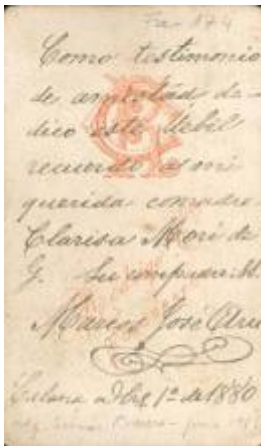 Como testimonio
de amistad de-
dico este debil
recuerdo a mi
querida comadre
Clarisa Mori de
G. Su compadre M.
Marcos José
1º de 1880